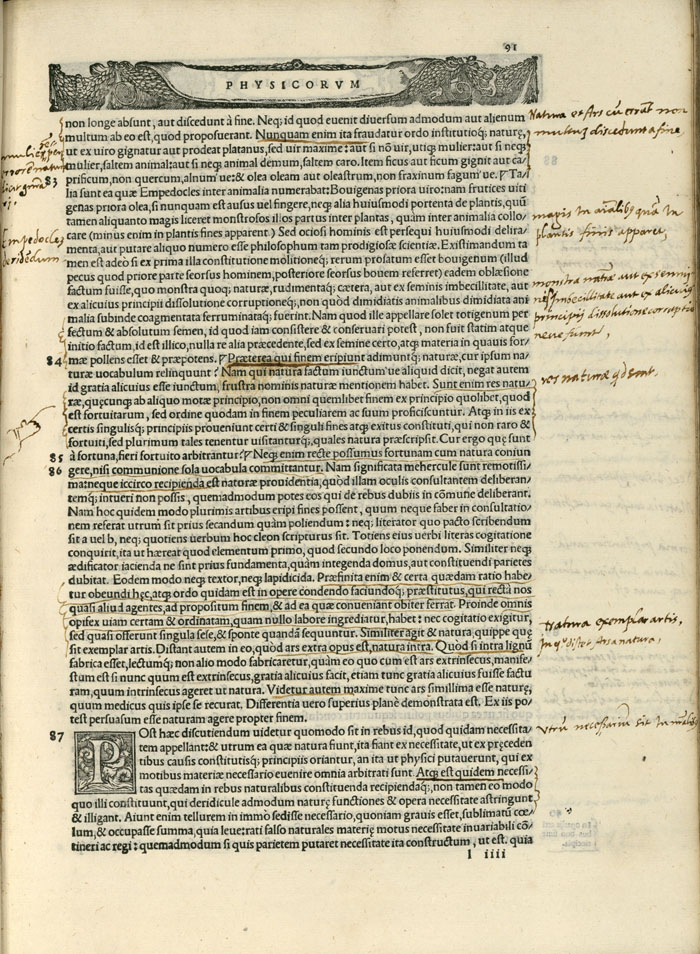 91
PHYSICORVM
non longe absunt, aut discedunt à fine. Neq; id quod euenit diuersum admodum aut alienum
multum ab eo est, quod proposuerant. Nunquam enim ita fraudatur ordo institutioq; naturę,
ut ex uiro gignatur aut prodeat platanus, sed uir maxime: aut si nō uir, utiq; mulier: aut si neq;
mulier, saltem animal: aut si neq; animal demum, saltem caro. Item ficus aut ficum gignit aut ca/
prificum, non quercum, alnum ue: & olea oleam aut oleastrum, non fraxinum fagum ue. Ta/
83
lia sunt ea quæ Empedocles inter animalia numerabat: Bouigenas priora uiro: nam frutices uiti
genas priora olea, si nunquam est ausus uel fingere, neq; alia huiusmodi portenta de plantis, quū
tamen aliquanto magis liceret monstrosos illos partus inter plantas, quàm inter animalia collo/
care (minus enim in plantis fines apparent.) Sed ociosi hominis est persequi huiusmodi delira/
menta, aut putare aliquo numero esse philosophum tam prodigiosæ scientiæ. Existimandum ta
men est adeò si ex prima illa constitutione molitioneq; rerum prosatum esset bouigenum (illud
pecus quod priore parte seorsus hominem, posteriore seorsus bouem referret) eadem oblæsione
factum fuisse, quo monstra quoq; naturæ, rudimentaq; cætera, aut ex seminis imbecillitate, aut
ex alicuius principii dissolutione corruptioneq;, non quòd dimidiatis animalibus dimidiata ani
malia subinde coagmentata ferruminataq; fuerint. Nam quod ille appellare solet totigenum per
fectum & absolutum semen, id quod iam consistere & conseruari potest, non fuit statim atque
initio factum, id est illico, nulla re alia præcedente, sed ex semine certo, atq; materia in quauis for/
mæ pollens esset & præpotens. Præterea qui finem eripiunt adimuntq; naturæ, cur ipsum na/
84
turæ uocabulum relinquunt? Nam qui natura factum iunctum ue aliquid dicit, negat autem
id gratia alicuius esse iunctum, frustra nominis naturæ mentionem habet. Sunt enim res natu/
ræ, quęcunq; ab aliquo motæ principio, non omni quemlibet finem ex principio quolibet, quod
est fortuitarum, sed ordine quodam in finem peculiarem ac suum proficiscuntur. Atq; in iis ex
certis singulisq; principiis proueniunt certi & singuli fines atq; exitus constituti, qui non raro &
fortuiti, sed plurimum tales tenentur uisitanturq;, quales natura præscripsit. Cur ergo quę sunt
à fortuna, fieri fortuito arbitrantur? Neq; enim recte possumus fortunam cum natura coniun
85
gere, nisi communione sola uocabula committantur. Nam significata mehercule sunt remotissi/
86
ma: neque iccirco recipienda est naturæ prouidentia, quòd illam oculis consultantem deliberan/
temq; intueri non possis, quemadmodum potes eos qui de rebus dubiis in cōmune deliberant.
Nam hoc quidem modo plurimis artibus eripi fines possent, quum neque faber in consultatio/
nem referat utrum sit prius secandum quàm poliendum: neq; literator quo pacto scribendum
sit a uel b, neq; quotiens uerbum hoc cleon scripturus sit. Totiens eius uerbi literas cogitatione
conquirit, ita ut hæreat quod elementum primo, quod secundo loco ponendum. Similiter neq;
ædificator iacienda ne sint prius fundamenta, quàm integenda domus, aut constituendi parietes
dubitat. Eodem modo neq; textor, neq; lapidicida. Præfinita enim & certa quædam ratio habe/
tur obeundi hęc, atq; ordo quidam est in opere condendo faciundoq; præstitutus, qui rectà nos
quasi aliud agentes, ad propositum finem, & ad ea quæ conueniant obiter ferrat. Proinde omnis
opifex uiam certam & ordinatam, quam nullo labore ingrediatur, habet: nec cogitatio exigitur,
sed quasi offerunt singula sese, & sponte quandam sequuntur. Similiter agit & natura, quippe quę
sit exemplar artis. Distant autem in eo, quòd ars extra opus est, natura intra. Quòd si intra lignū
fabrica esset, lectumq; non alio modo fabricaretur, quàm eo quo cum est ars extrinsecus, manife/
stum est si nunc quum est extrinsecus, gratia alicuius facit, etiam tunc gratia alicuius fuisse factu
ram, quum intrinsecus ageret ut natura. Videtur autem maxime tunc ars simillima esse naturę,
quum medicus quis ipse se recurat. Differentia uero superius planè demonstrata est. Ex iis po/
test persuasum esse naturam agere propter finem.
87
POst hæc discutiendum uidetur quomodo sit in rebus id, quod quidam necessita/
tem appellant: & utrum ea quæ natura fiunt, ita fiant ex necessitate, ut ex pręceden
tibus causis constitutisq; principiis oriantur, an ita ut physici putauerunt, qui ex
motibus materiæ necessario euenire omnia arbitrati sunt. Atq; est quidem necessi/
tas quædam in rebus naturalibus constituenda recipiendaq;, non tamen eo modo
quo illi constituunt, qui deridicule admodum naturę functiones & opera necessitate astringunt
& illigant. Aiunt enim tellurem in immò sedisse necessario, quoniam grauis esset, sublimatū cœ/
lum, & occupasse summa, quia leue: rati falso naturales materię motus necessitate inuariabili cō/
tineri ac regi: quemadmodum si quis parietem putaret necessitate ita constructum, ut est. quia
l iiii
Natura et Ars cū errāt non
multū discedunt a fine
Empedocles
deridēdum
magis in aīalibus quā in
plantis finis apparet,
monstra naturæ aut ex seminis
imbecillitate aut ex alicuius
principii dissolutione corruptio
neue sunt,
res naturæ qd sint.
Natura exemplar artis,
in quo distet Ars a natura,
utrū necessariū sit in